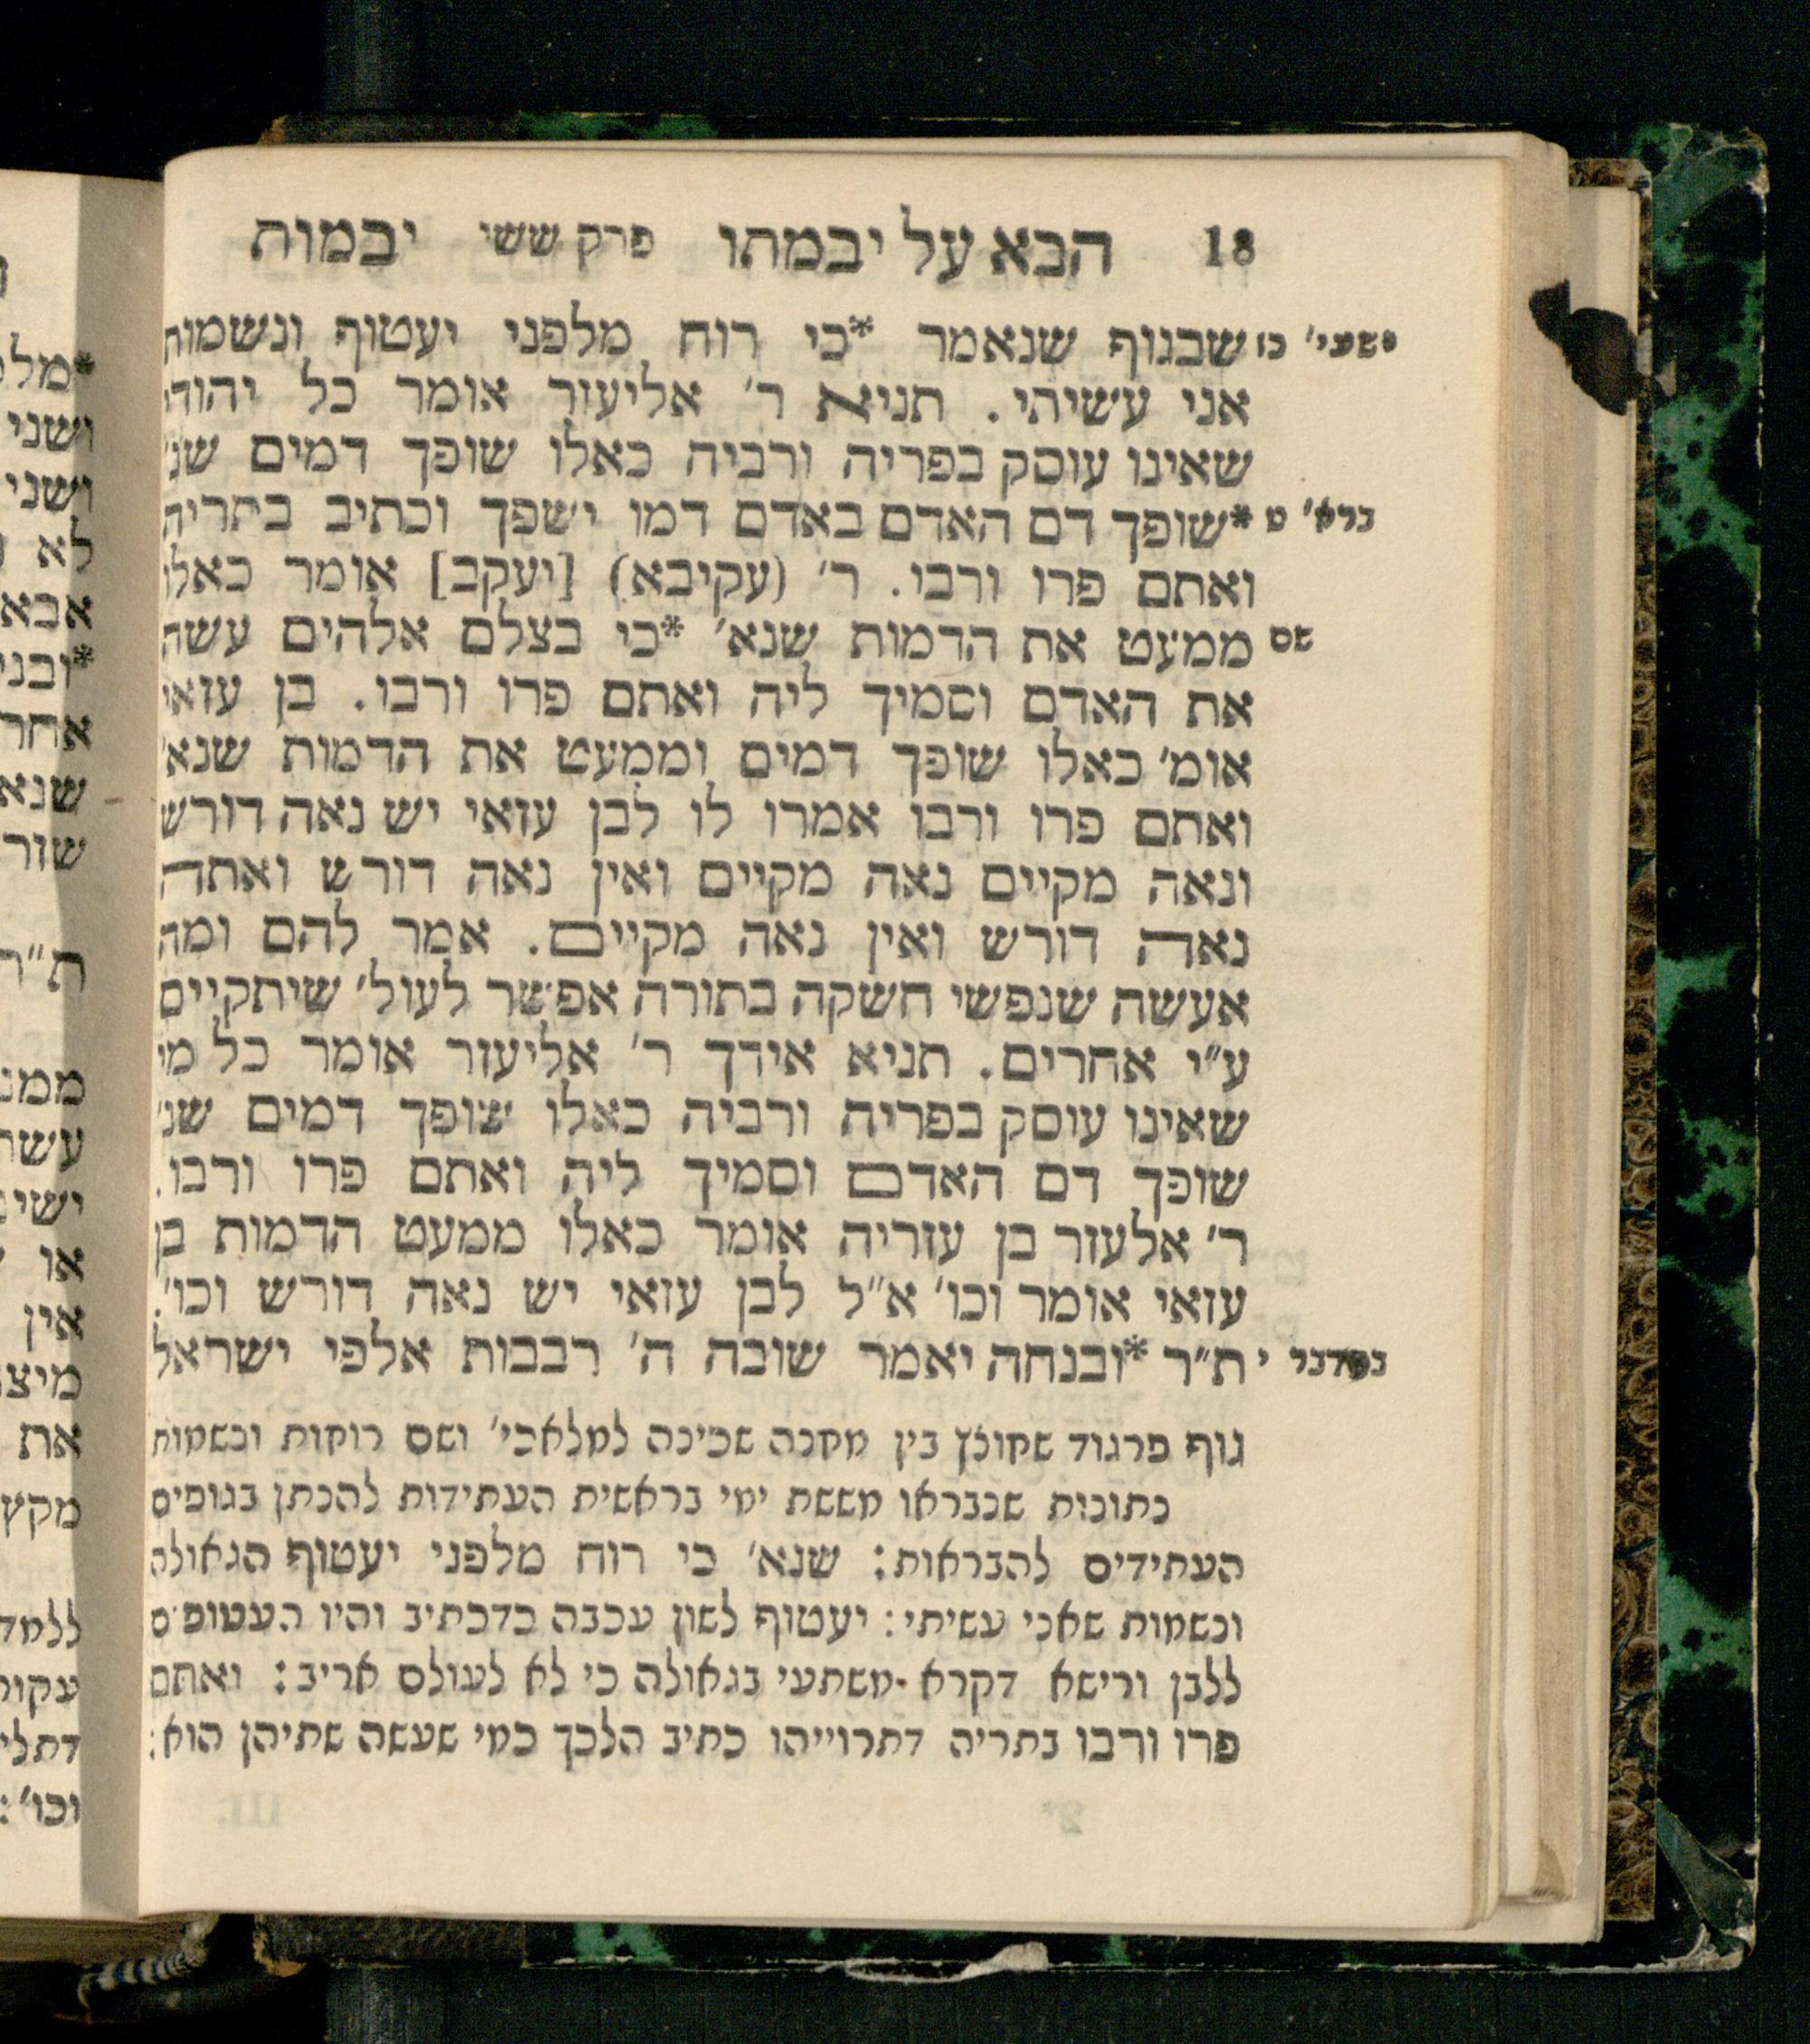 18 הבא על יבמתו פרק ששי יבמות
ישעי׳ נז שבגוף שנאמר *כי רוח מלפני יעטוף ונשמות
אני עשיתי. תניא ר׳ אליעזר אומר כל יהודי
שאינו עוסק בפריה ורביה כאלו שופך דמים שנ׳
ברא׳ ט *שופך דם האדם באדם דמו ישפך וכתיב בתריה
ואתם פרו ורבו. ר׳ (עקיבא) [יעקב] אומר כאלו
שם ממעט את הדמות שנא׳ *כי בצלם אלהים עשה
את האדם וסמיך ליה ואתם פרו ורבו. בן עזאי
אומ׳ כאלו שופך דמים וממעט את הדמות שנא׳
ואתם פרו ורבו אמרו לו לבן עזאי יש נאה דורש
ונאה מקיים נאה מקיים ואין נאה דורש ואתה
נאה דורש ואין נאה מקיים. אמר להם ומה
אעשה שנפשי חשקה בתורה אפשר לעול׳ שיתקיים
ע״י אחרים. תניא אידך ר׳ אליעזר אומר כל מי
שאינו עוסק בפריה ורביה כאלו שופך דמים שנ׳
שופך דם האדם וסמיך ליה ואתם פרו ורבו.
ר׳ אלעזר בן עזריה אומר כאלו ממעט הדמות בן
עזאי אומר וכו׳ א״ל לבן עזאי יש נאה דורש וכו׳.
במדבר י ת״ר *ובנחה יאמר שובה ה׳ רבבות אלפי ישראל
גוף פרגוד שחוצץ בין מחנה שכינה למלאכי׳ ושם רוחות ונשמות
נתונות שנבראו מששת ימי בראשית העתידות להנתן בגופים
העתידים להבראות: שנא׳ כי רוח מלפני יעטוף הגאולה
ונשמות שאני עשיתי: יעטוף לשון עכבה כדכתיב והיו העטופים
ללבן ורישא דקרא משתעי בגאולה כי לא לעולם אריב: ואתם
פרו ורבו בתריה דתרוייהו כתיב הלכך כמי שעשה שתיהן הוא: